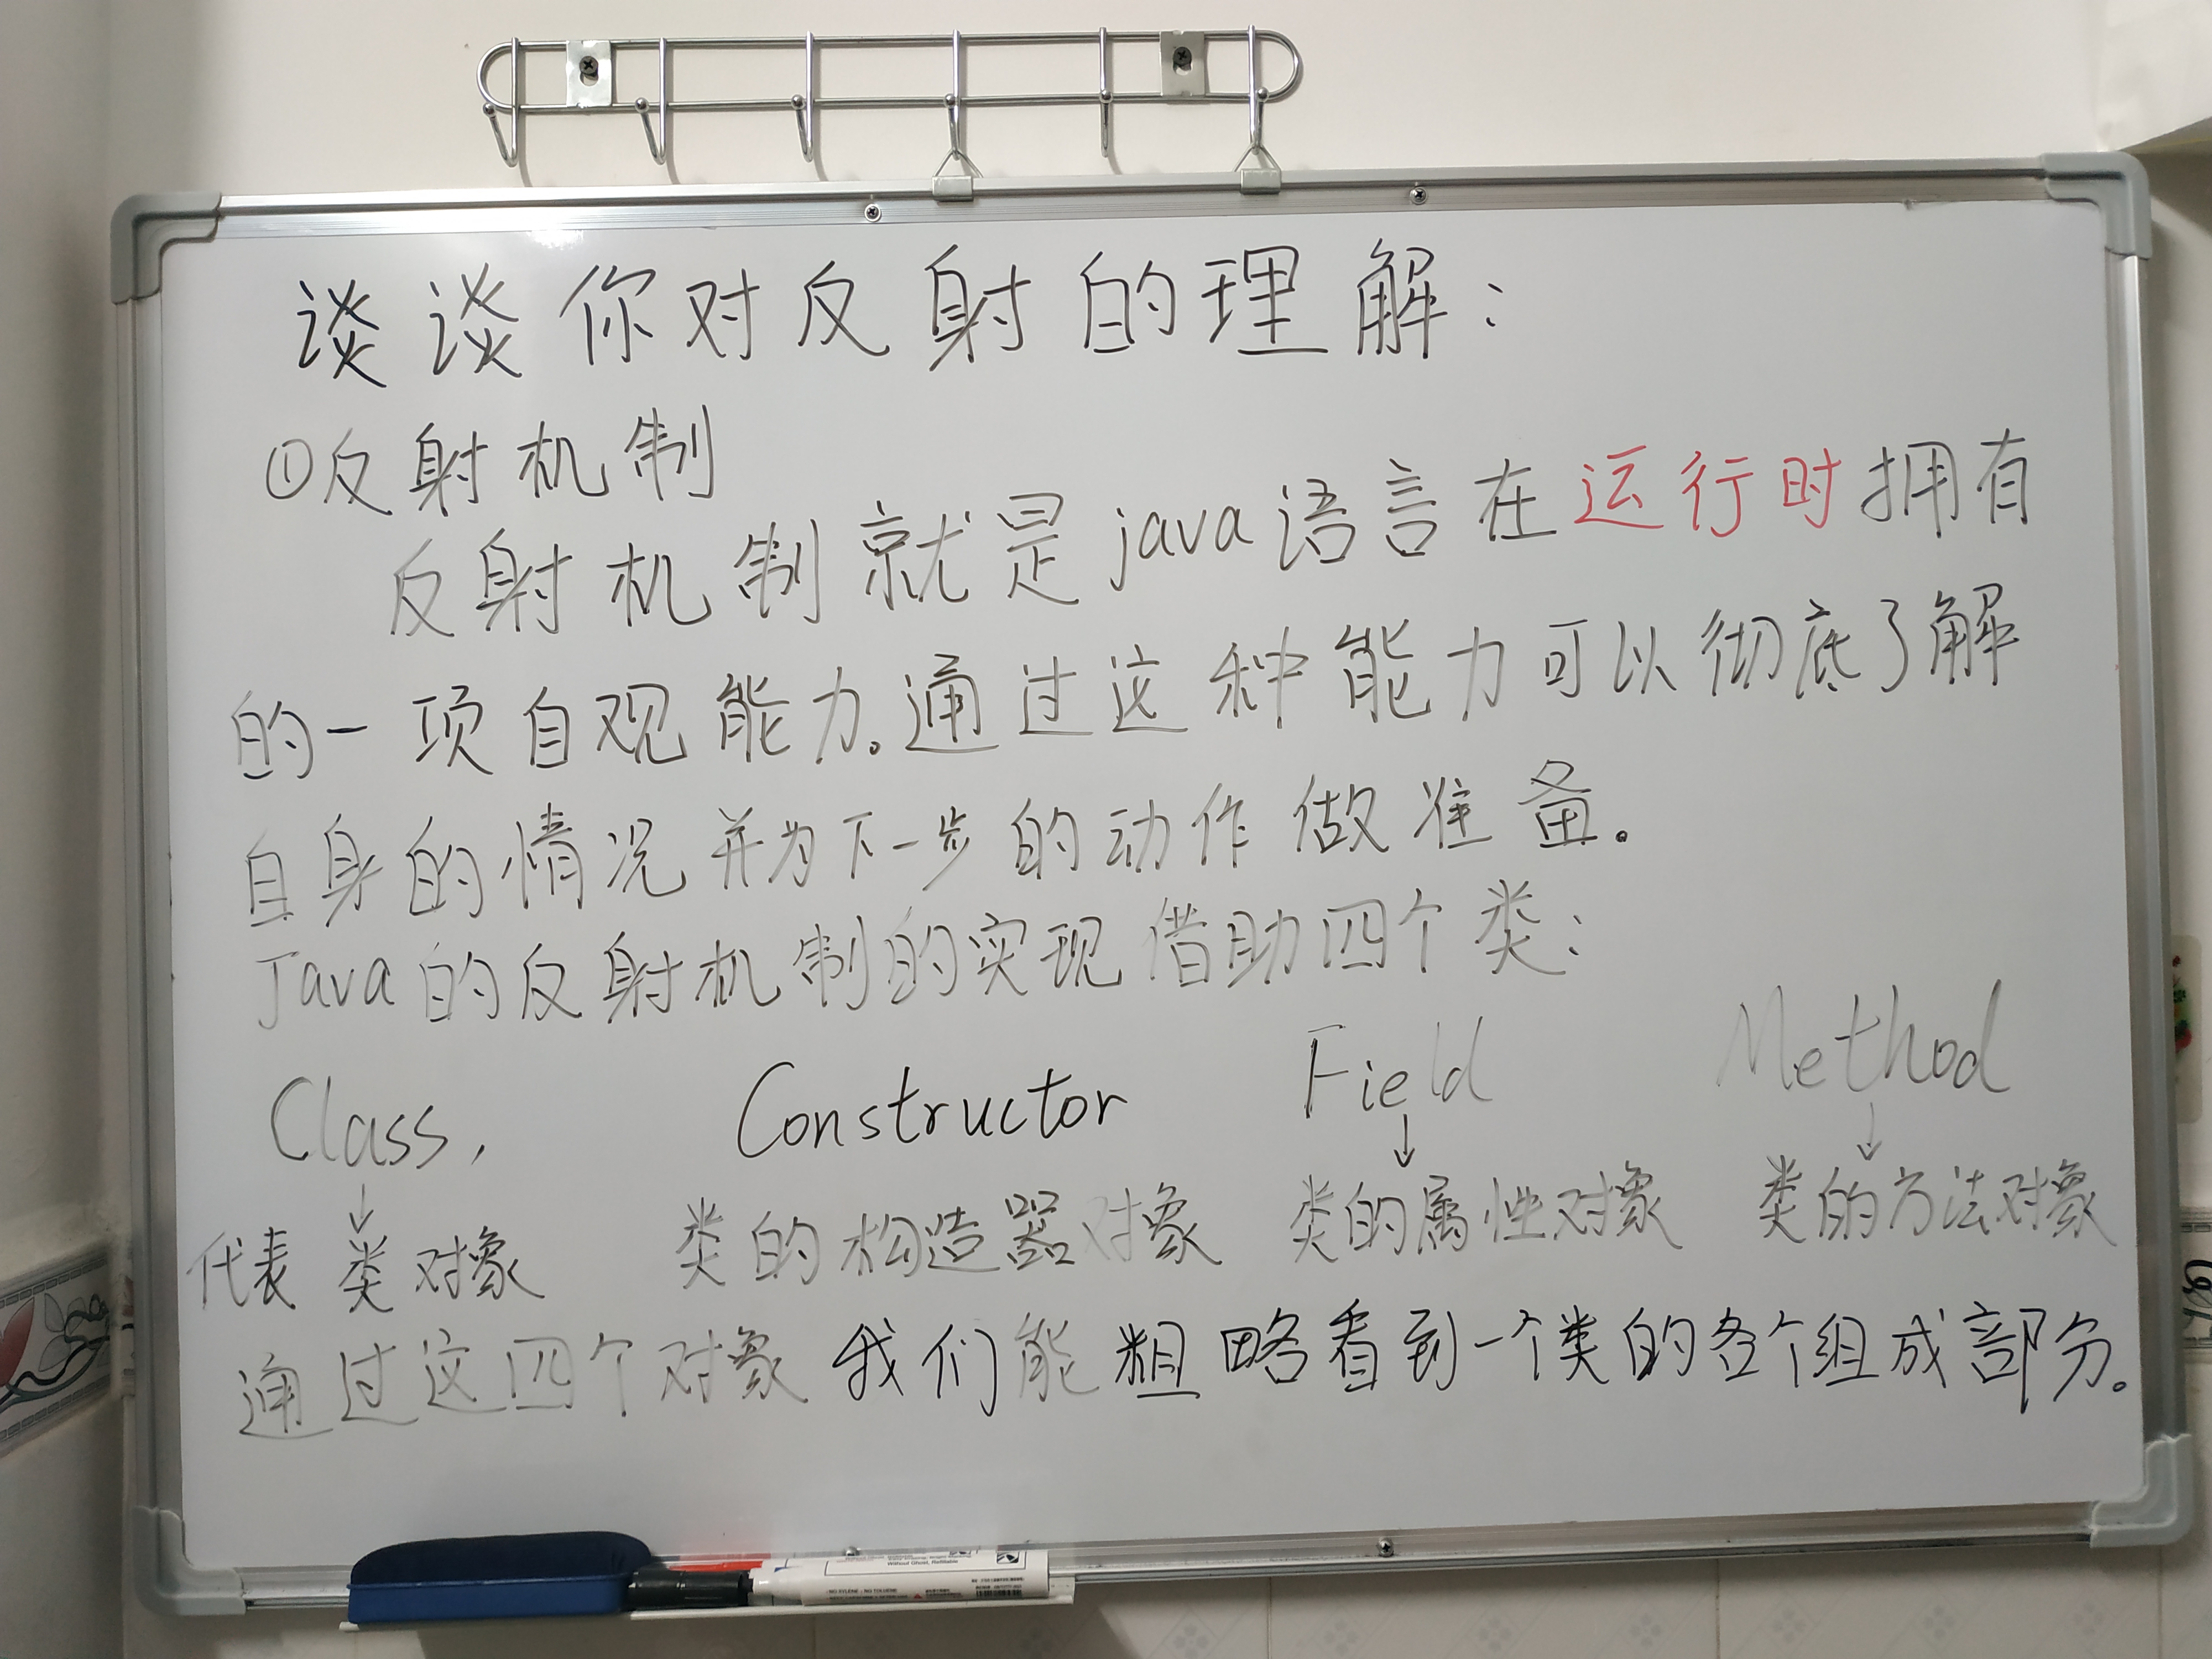 谈谈你对反射的理解：
①反射机制
反射机制就是java语言在运行时拥有
的一项自观能力。通过这种能力可以彻底了解
自身的情况并为下一步的动作做准备。
Java的反射机制的实现借助四个类：
Class, Constructor Field Method
↓ ↓ ↓
代表类对象 类的构造器对象 类的属性对象 类的方法对象
通过这四个对象我们能粗略看到一个类的各个组成部分。
Without Ghost, Refillable
NO XYLENE NO TOLUENE